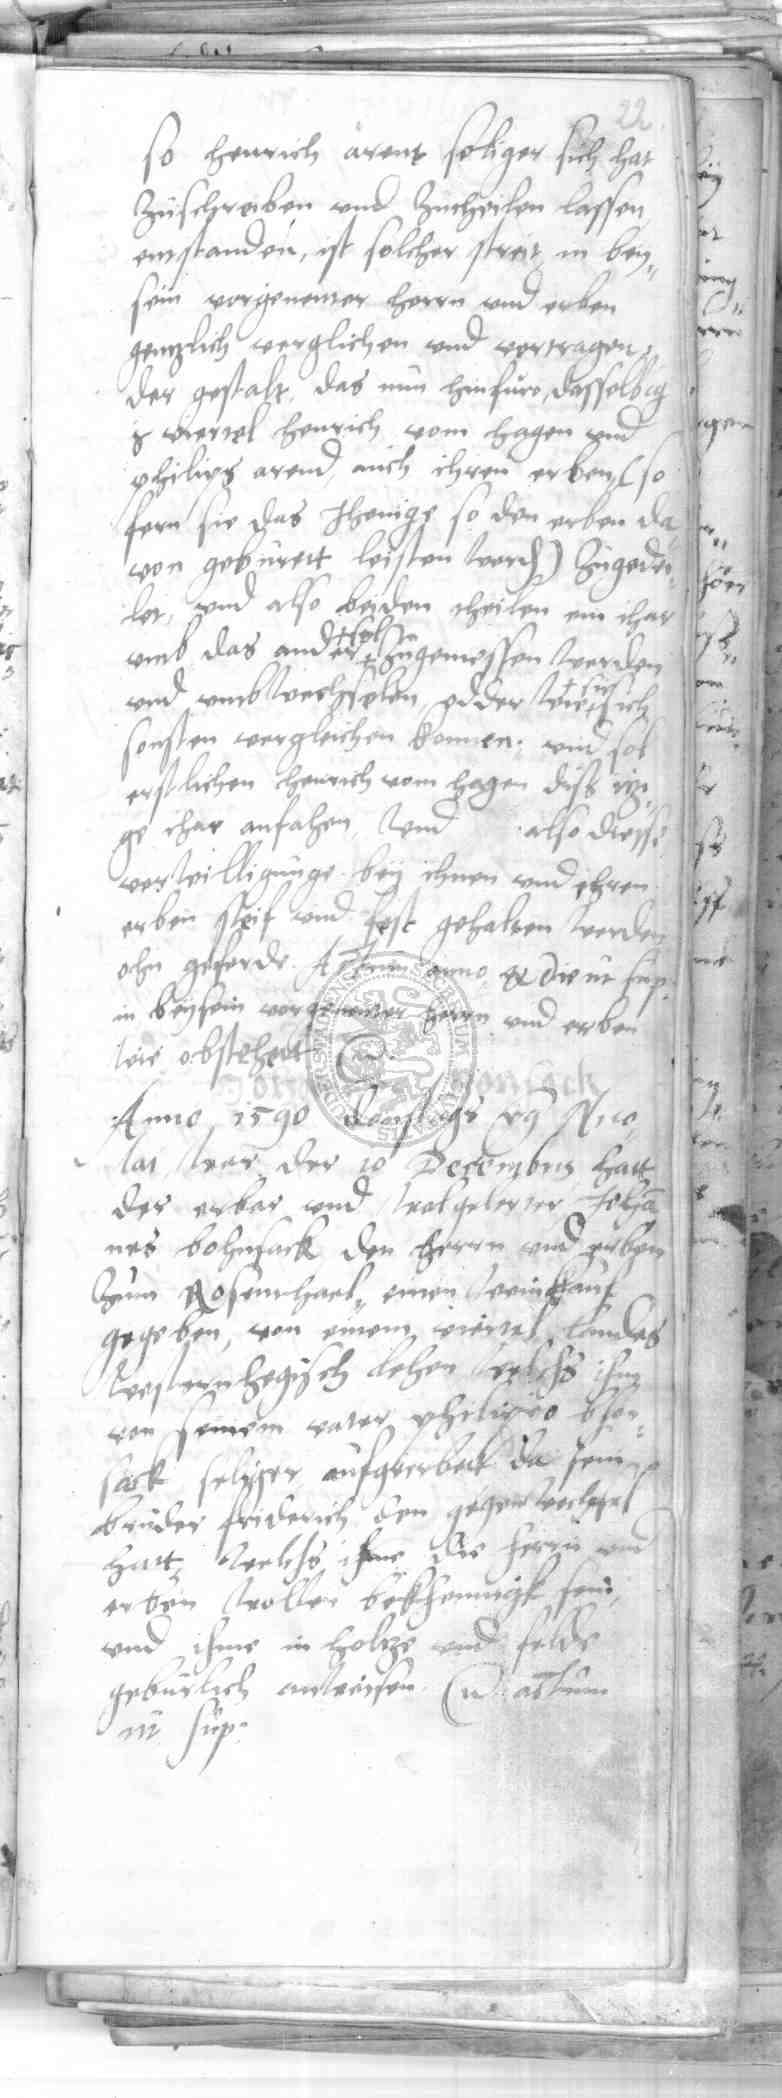 22
so henrich arent seliger sich hat
zuschreiben und zutheilen lassen
entstanden, ist solcher streit in bey„
sein vorgenenter herrn und erben
gentzlich verglichen und vertragen,
der gestalt, das nun hinfuro, dasselbig
viertel henrich vom hagen und
philips arend, auch ihren erben (so
fern sie das jhenige so den erben da
von geburett leisten werden) zugedei„
let, und also beiden theilen ein ihar
umb das ander sol zugemessen werden
und umbwechselen, odder wie sie sich
sonsten vergleichen konnen, und sol
erstlichen henrich vom hagen diss itzi„
ge ihar anfahen, und also diesse
verwilligunge bey ihnen und ihren
erben steif und fest gehalten werden
ohn geferde. Actum anno & die ut sup.
in beysein vorgenenter herrn und erben
wie obstehett
Anno 1590 donstags Nico„
lai war der 10 Decembris hatt
der erbar und wolgelerter Johan
nes bohnsack den herrn und erben
zum Rosenthael einen weinkauf
gegeben, von einem viertel landes
westernhegisch lehen welchs ihm
von seinem vater philippo bhon„
sack seliger aufgeerbett da sein
bruder friderich den gegen
hatt, welchs ihme die herrn und
erben wollen bekhennigk sein,
und ihme in holtze und felde
geburlich anweisen. actum
ut sup.